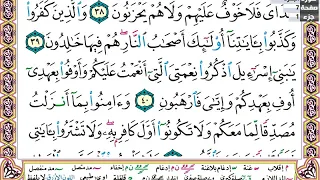 هُدَاىَ فَلَا خَوْفٌ عَلَيْهِمْ وَلَا هُمْ يَحْزَنُونَ ٣٨ وَالَّذِينَ كَفَرُوا۟
وَكَذَّبُوا۟ بِـَٔايَٰتِنَآ أُو۟لَٰٓئِكَ أَصْحَٰبُ النَّارِ هُمْ فِيهَا خَٰلِدُونَ ٣٩
يَٰبَنِىٓ إِسْرَٰٓءِيلَ اذْكُرُوا۟ نِعْمَتِىَ الَّتِىٓ أَنْعَمْتُ عَلَيْكُمْ وَأَوْفُوا۟ بِعَهْدِىٓ
أُوفِ بِعَهْدِكُمْ وَإِيَّٰىَ فَارْهَبُونِ ٤٠ وَءَامِنُوا۟ بِمَآ أَنزَلْتُ
مُصَدِّقًا لِّمَا مَعَكُمْ وَلَا تَكُونُوٓا۟ أَوَّلَ كَافِرٍۭ بِهِۦ وَلَا تَشْتَرُوا۟ بِـَٔايَٰتِى